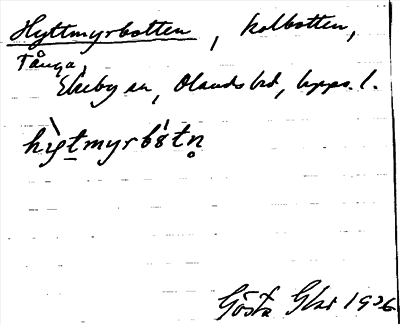 Hyttmyrbotten, kolbotten,
Tånga,
Ekeby sn, Olands hd, Upps. l.
hỳtmyrbåtn
Gösta 1936